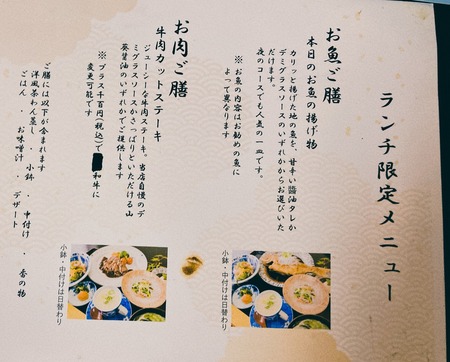 ランチ限定メニュー
お魚ご膳
本日のお魚の揚げ物
カリッと揚げた地の魚を、甘辛い醤油タレか
デミグラスソースのいずれかからお選びいた
だけます。
夜のコースでも人気の一皿です。
※お魚の内容はお勧めの魚に
よって異なります
小鉢・中付けは日替わり
お肉ご膳
牛肉カットステーキ
ジューシーな牛肉ステーキ。当店自慢のデ
ミグラスソースかさっぱりといただける山
葵醤油のいずれかでご提供します
※プラス千百円(税込)で
和牛に
変更可能です
小鉢・中付けは日替わり
ご膳には以下が含まれます
洋風茶わん蒸し、小鉢、中付け、香の物
ごはん、お味噌汁、デザート